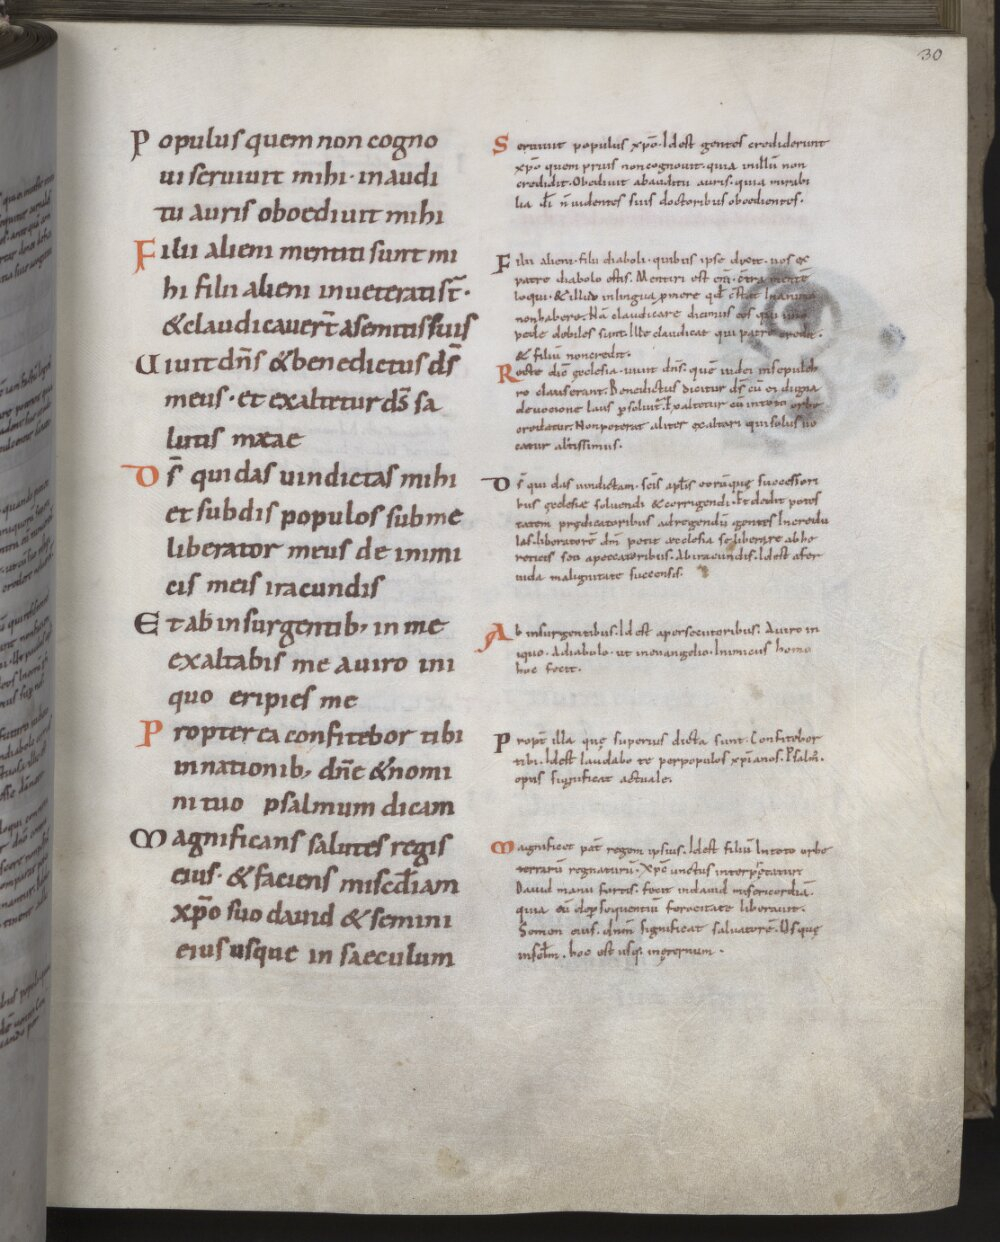 30
Populus quem non cogno
ui seruiuit mihi· in audi
tu auris oboediuit mihi
Filii alieni mentiti sunt mi
hi filii alieni inueterati sT̄·
&claudicauerT̄ a semitis suis
Uiuit dn̄s &benedictus ds̄
meus· et exaltetur ds̄ sa
lutis meae
Ds̄ qui das uindictas mihi
et subdis populos sub me
liberator meus de inimi
cis meis iracundis
Et ab insurgentib; in me
exaltabis me a uiro ini
quo eripies me
Propterea confitebor tibi
in nationib; dn̄e &nomi
ni tuo psalmum dicam
Magnificans salutes regis
eius· &faciens misc̄diam
xp̄o suo dauid &semini
eius usque in saeculum
Seruiuit populus xp̄o. Id est gentes crediderunt
xp̄o quem prius non cognouit· quia in illū non
credidit. Obediuit ab auditu auris· quia mirabi
lia dī n̄ uidentes suis doctoribus oboedientes.
Filii alieni· filii diaboli· quibus ipse dixit. uos ex
patre diabolo estis. Mentiri est
loqui·
non habere. claudicare dicimus eos qui uno
pede debiles sunt. Ille claudicat qui patrē credit.
& filiū non credit.
Recte dic̄ ęcclesia· uiuit dn̄s· quē iudei in sepulch
ro clauserant. Benedictus dicitur ds̄ cū ei digna
deuotione laus psoluit᷑. Exaltetur cū in toto orbe
creditur. Non poterat aliter exaltari qui solus uo
catur altissimus.
Ds̄ qui das uindictam· scīs aplīs eorūque successori
bus ęcclesię soluendi & corrigendi. Et dedit potes
tatem prędicatoribus ad regendū gentes incredu
las. liberatorē dn̄m petit ęcclesia se liberare ab he
reticis seu a peccatoribus. Ab iracundis. Id est a fer
uida malignitate succensis.
Ab insurgentibus. Id est a persecutoribus. A uiro in
iquo. A diabolo· ut in euangelio. Inimicus homo
hoc fecit.
Propt̄ illa quę superius dicta sunt. Confitebor
tibi. Id est laudabo te per populos xp̄ianos. Psalm̄.
opus significat actuale.
Magnificet pat̄ regem ipsius. Id est filiū in toto orbe
terrarū regnaturū. Xp̄c unctus interp̄tatur
Dauid manu fortis. fecit in dauid misericordiā.
quia eū de psequentiū ferocitate liberauit.
Semen eius. dn̄m significat saluatorē. Usque
in scl̄m. hoc est usq; in ęternum.